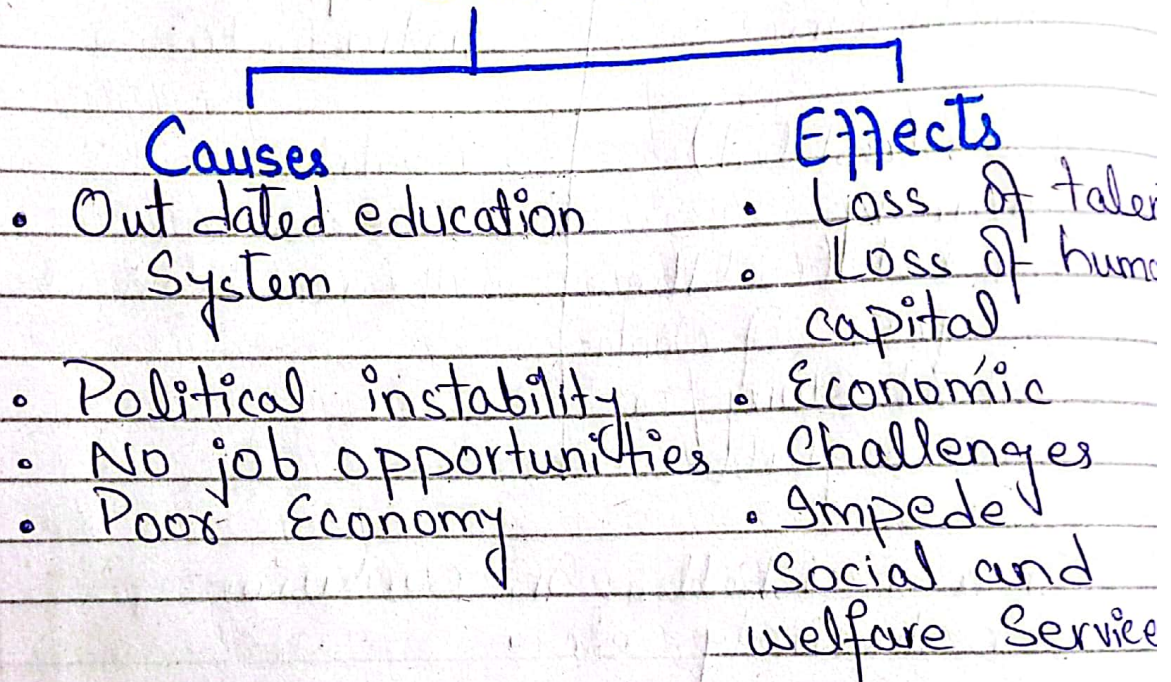 Causes
• Out dated education
System
• Political instability
• No job opportunities
• Poor Economy
Effects
• Loss of
• Loss of
capital
• Economic
Challenges
• Impede
Social and
welfare Service